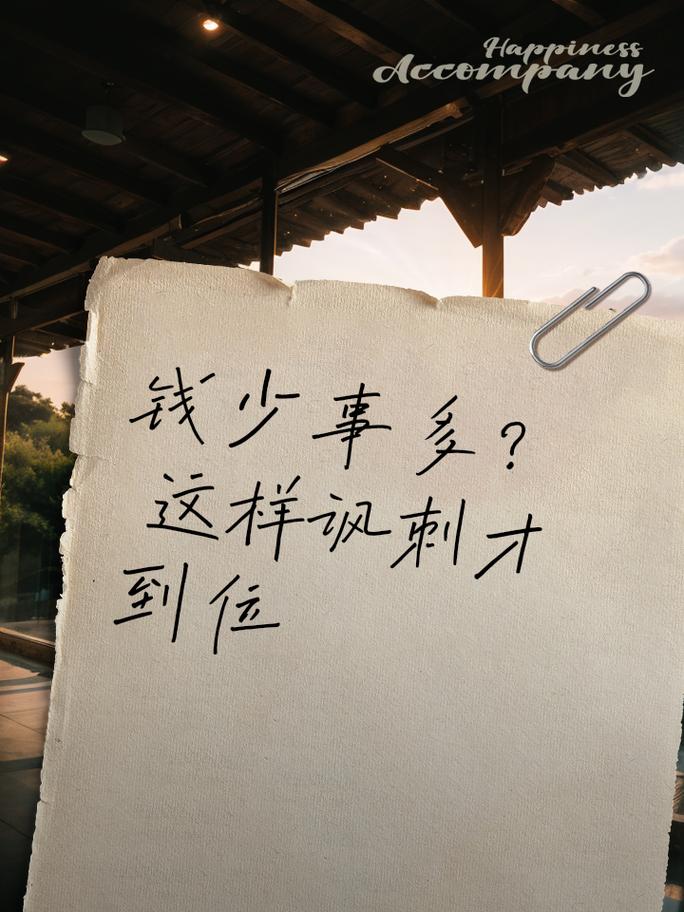 Happiness
Accompany
钱少事多？
这样讽刺才
到位